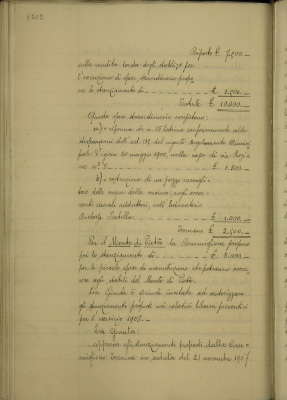 1202
Riporto £ 7,500 —
sulla rendita lorda degli stabili, e per
l'esecuzione di opere straordinarie propo
ne lo stanziamento di — £ 2,500 —
Totale £ 10,000 —
Quali spese straordinarie
a) = riforma di n. 15 latrine conformemente alle
disposizioni dell'art. 125 del vigente Regolamento Munici
pale d'igiene 20 maggio 1900, nella casa di via
no n. — £ 1.500 —
b) = costruzione di un pozzo raccogli=
tore delle acque della cucina, cogli occor
renti canali adduttori, nell'Educatorio
Isabella — £ 1.000 —
Tornano £ 2,500 —
Per il Monte di Pietà la Commissione propone
poi lo stanziamento di — £ 8.000 —
per le piccole opere di manutenzione che potranno occor=
rere agli stabili del Monte di Pietà.
La Giunta è quindi invitata ad autorizzare
gli stanziamenti proposti nei relativi bilanci preventivi
per l'esercizio 1908. —
La Giunta:
approva gli stanziamenti proposti dalla Com=
missione Tecnica in seduta del 21 novembre 1907